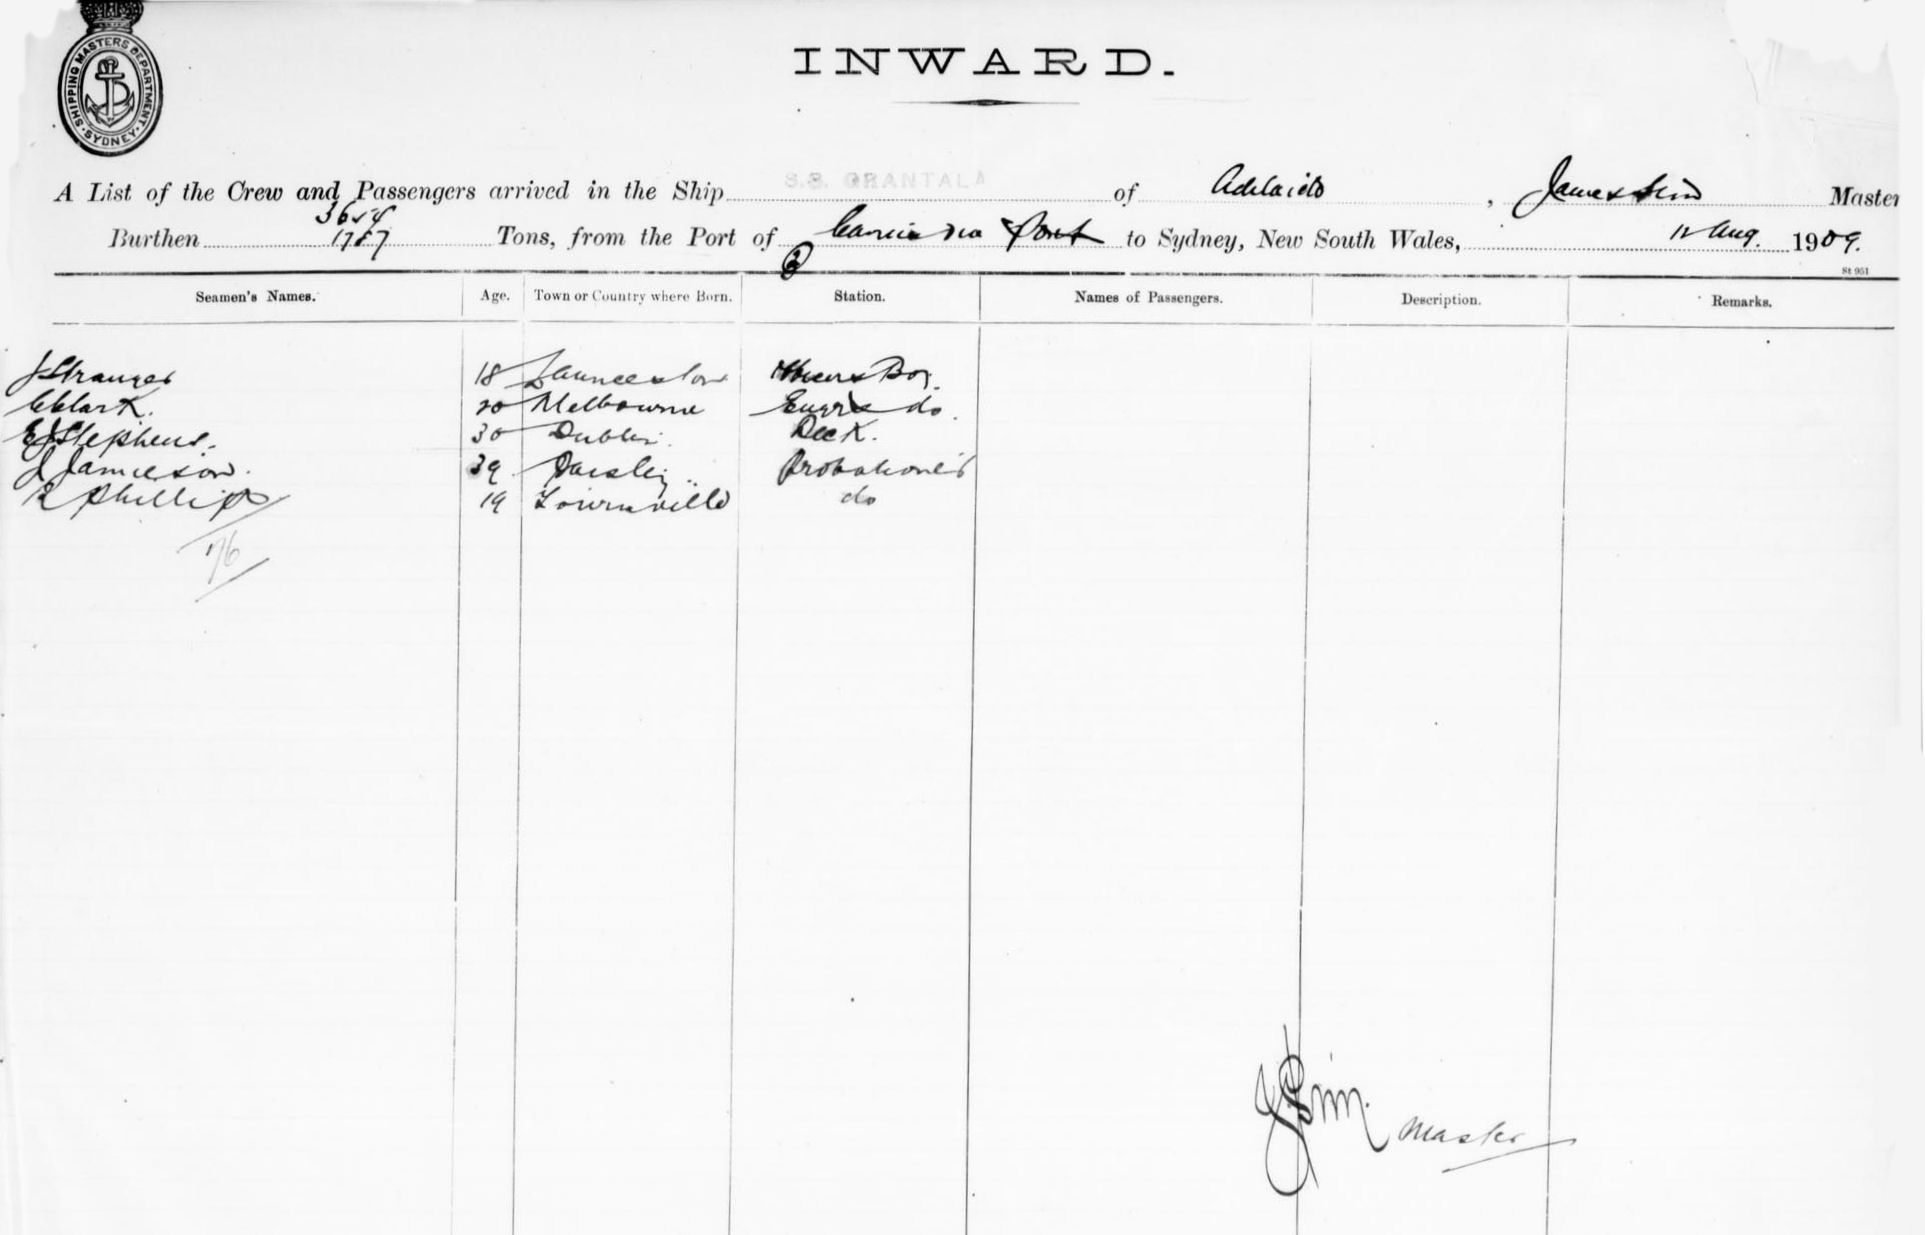 SHIPPING MASTERS DEPARTMENT. SYDNEY.
INWARD.
A List of the Crew and Passengers arrived in the Ship S.S. GRANTALA of Adelaide, James Sim Master
Burthen 3654 1787 Tons, from the Port of Cairns via Ports to Sydney, New South Wales, 12 Aug. 1909.
2
St 951
Seamen's Names. Age. Town or Country where Born. Station. Names of Passengers. Description. Remarks.
J Stranger 18 Launceston Boy.
C Clark. 20 Melbourne Engrs do.
E J Stephens. 30 Dublin. Deck.
J Jamieson. 39 Paisley Probationer
R Phillips 19 Townsville do
176
J Sim. Master